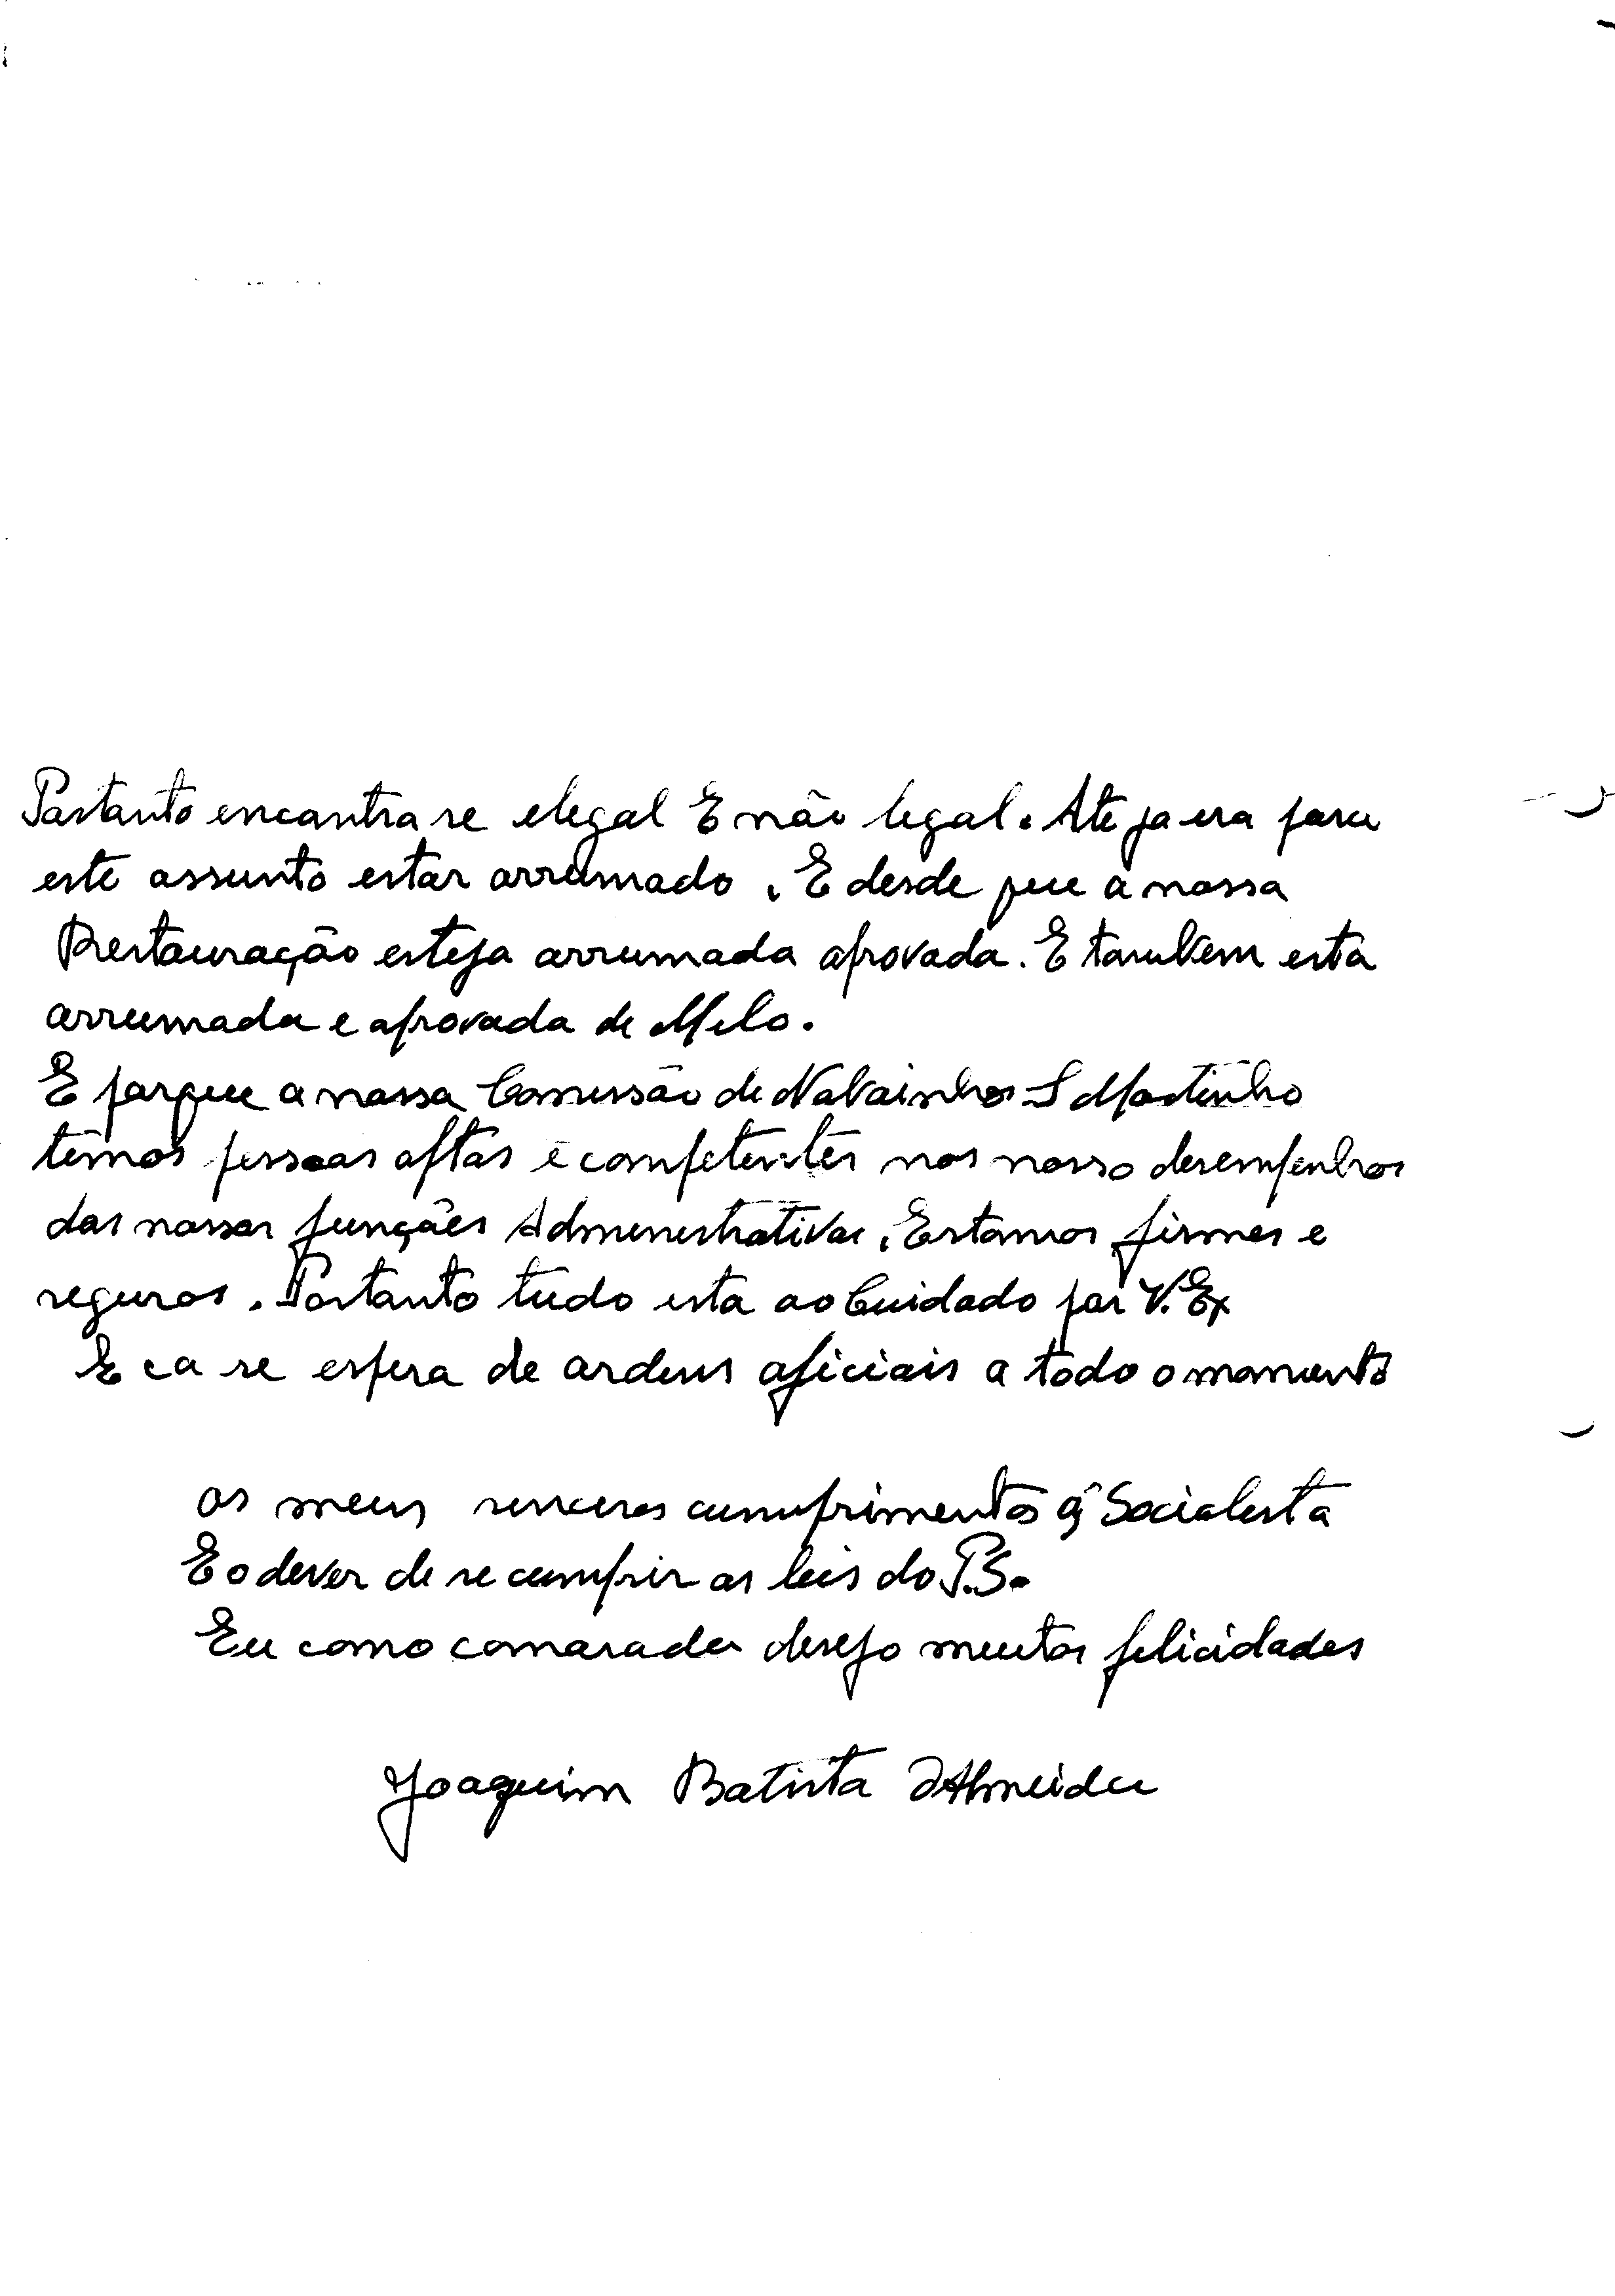 Portanto encontra se elegal E não legal. Ate ja era para
este assunto estar arrumado. E desde que a nossa
Restauração esteja arrumada aprovada. E tambem esta
arrumada e aprovada de Melo.
E porque a nossa Comissão de Nabainhos S Martinho
temos pessoas aptas e competentes nos nosso desempenhos
das nossas funções Admenistrativas. Estamos firmes e
seguros. Portanto tudo esta ao Cuidado por V. Ex
E ca se espera de ordens oficiais a todo o momento
os meus senceros cumprimentos Socialesta
E o dever de se cumprir as leis do P.S.
Eu como camarada desejo muitas felicidades
Joaquim Batista d'Almeida